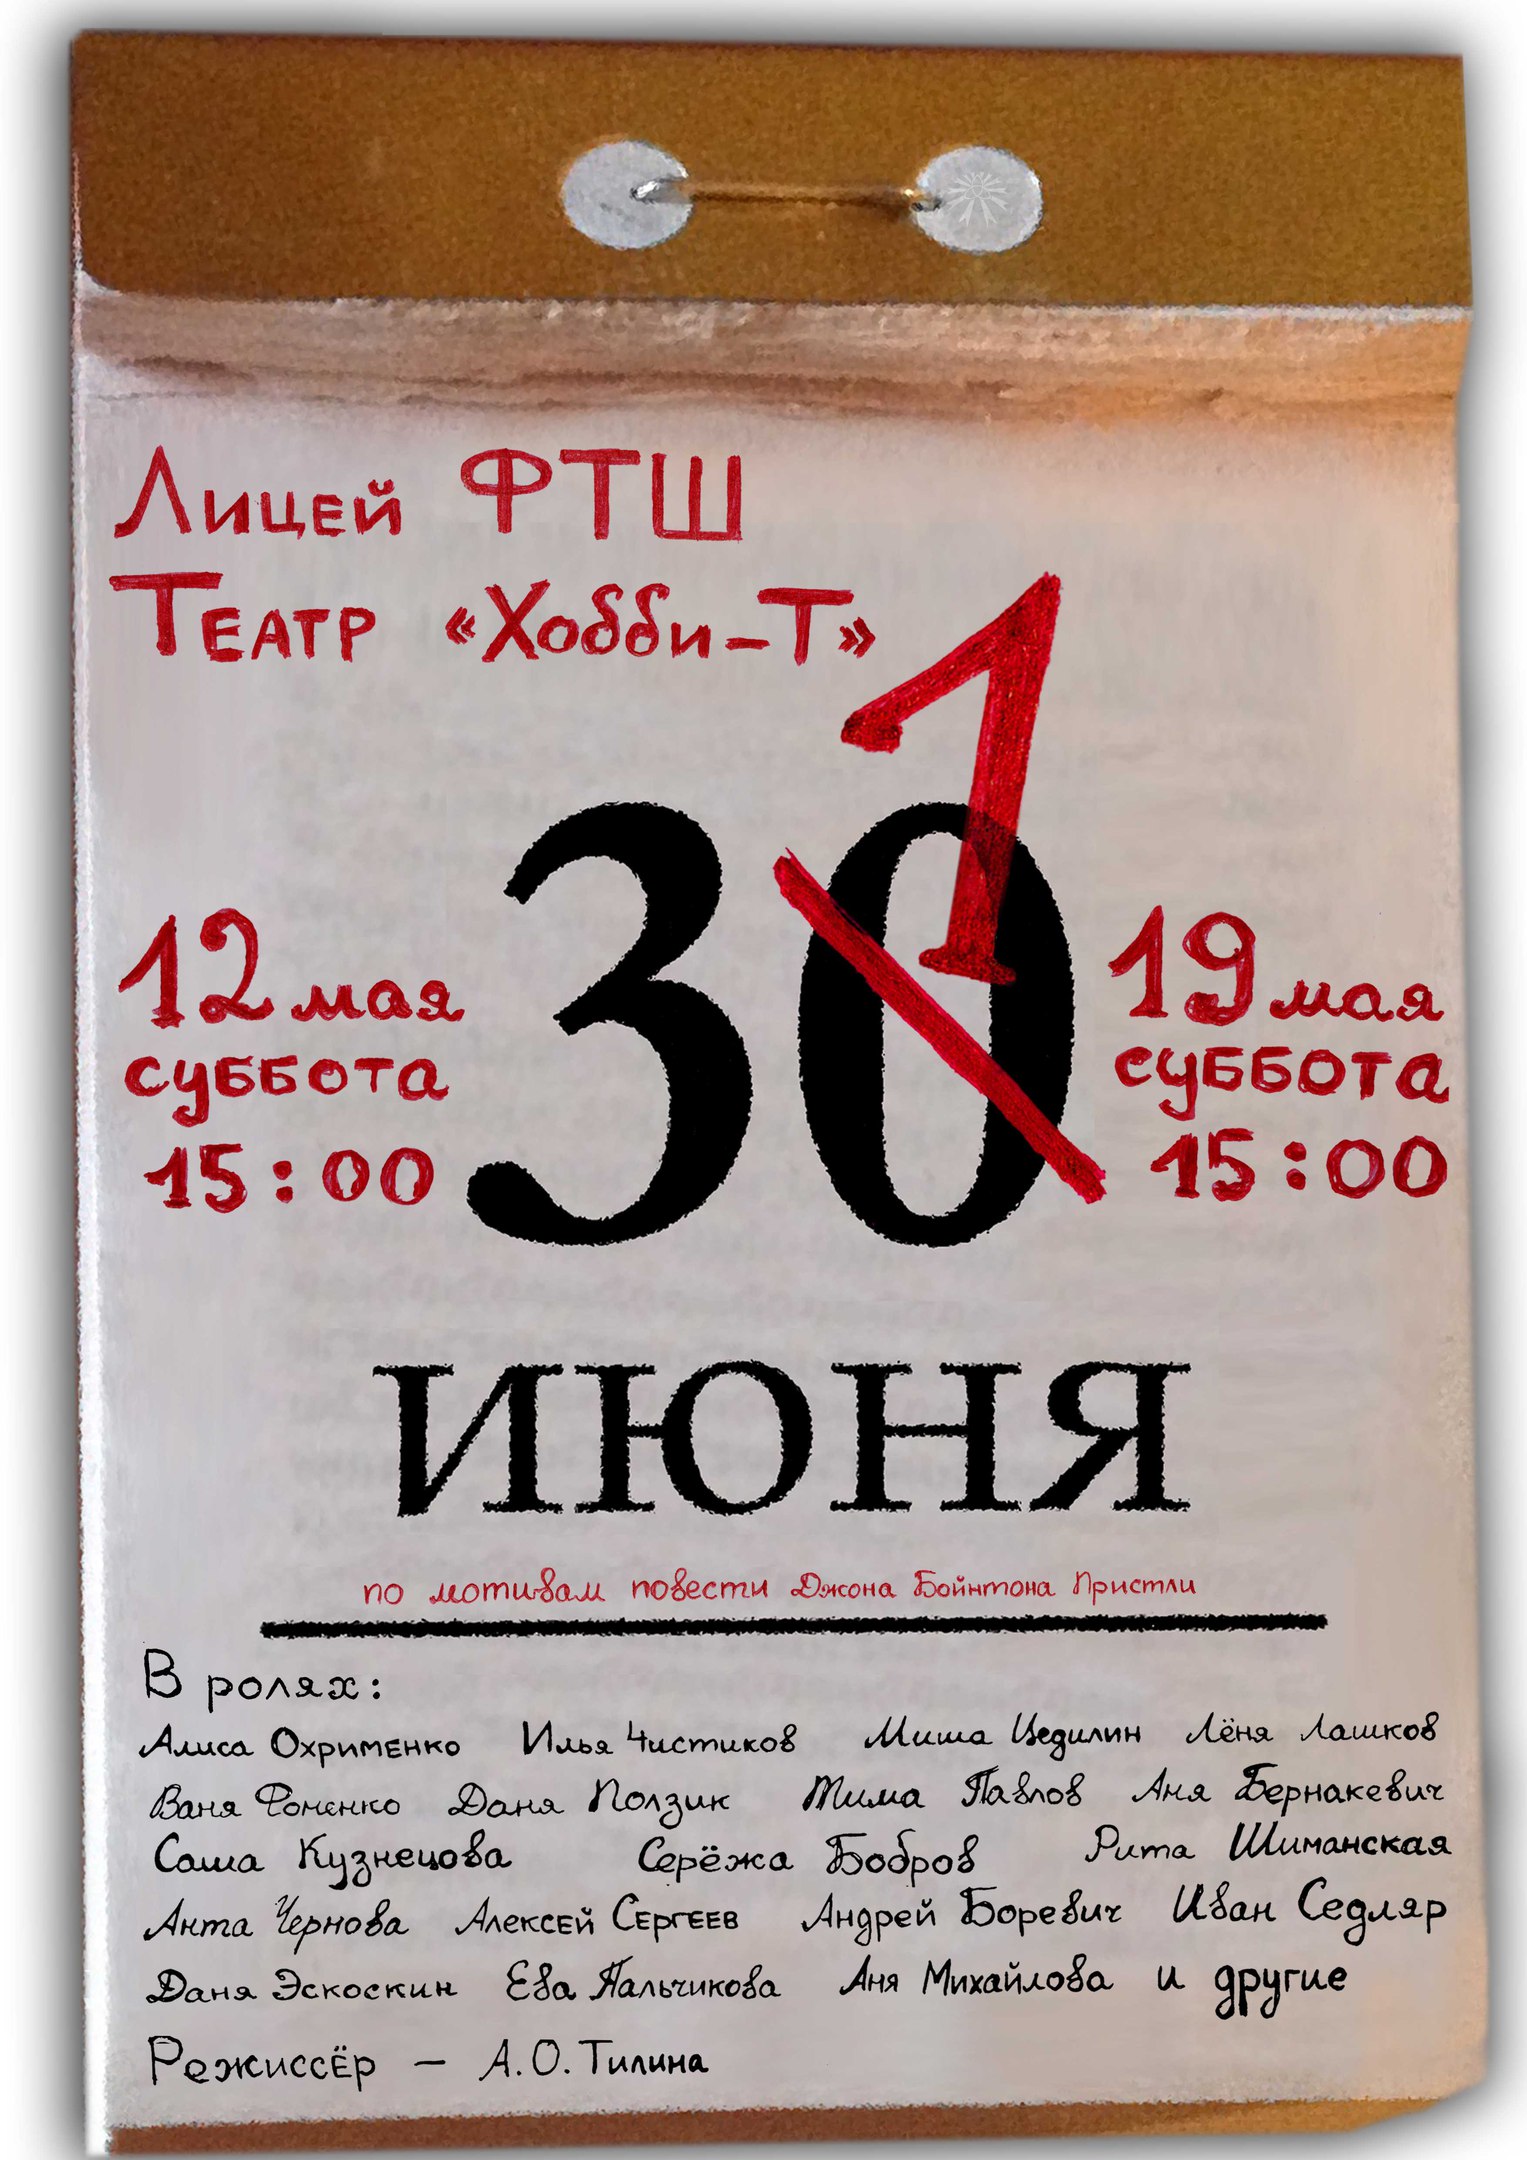 Лицей ФТШ
Театр «Хобби-Т»
1
30
12 мая
суббота
15:00
19 мая
суббота
15:00
ИЮНЯ
по мотивам повести Джона Бойнтона Пристли
В ролях:
Алиса Охрименко Илья Чистиков Миша Цедилин Лёня Лашков
Ваня Фоменко Даня Ползик Тима Павлов Аня Бернакевич
Саша Кузнецова Серёжа Бобров Рита Шиманская
Анта Чернова Алексей Сергеев Андрей Боревич Иван Седляр
Даня Эскоскин Ева Пальчикова Аня Михайлова и другие
Режиссёр – А.О. Тилина